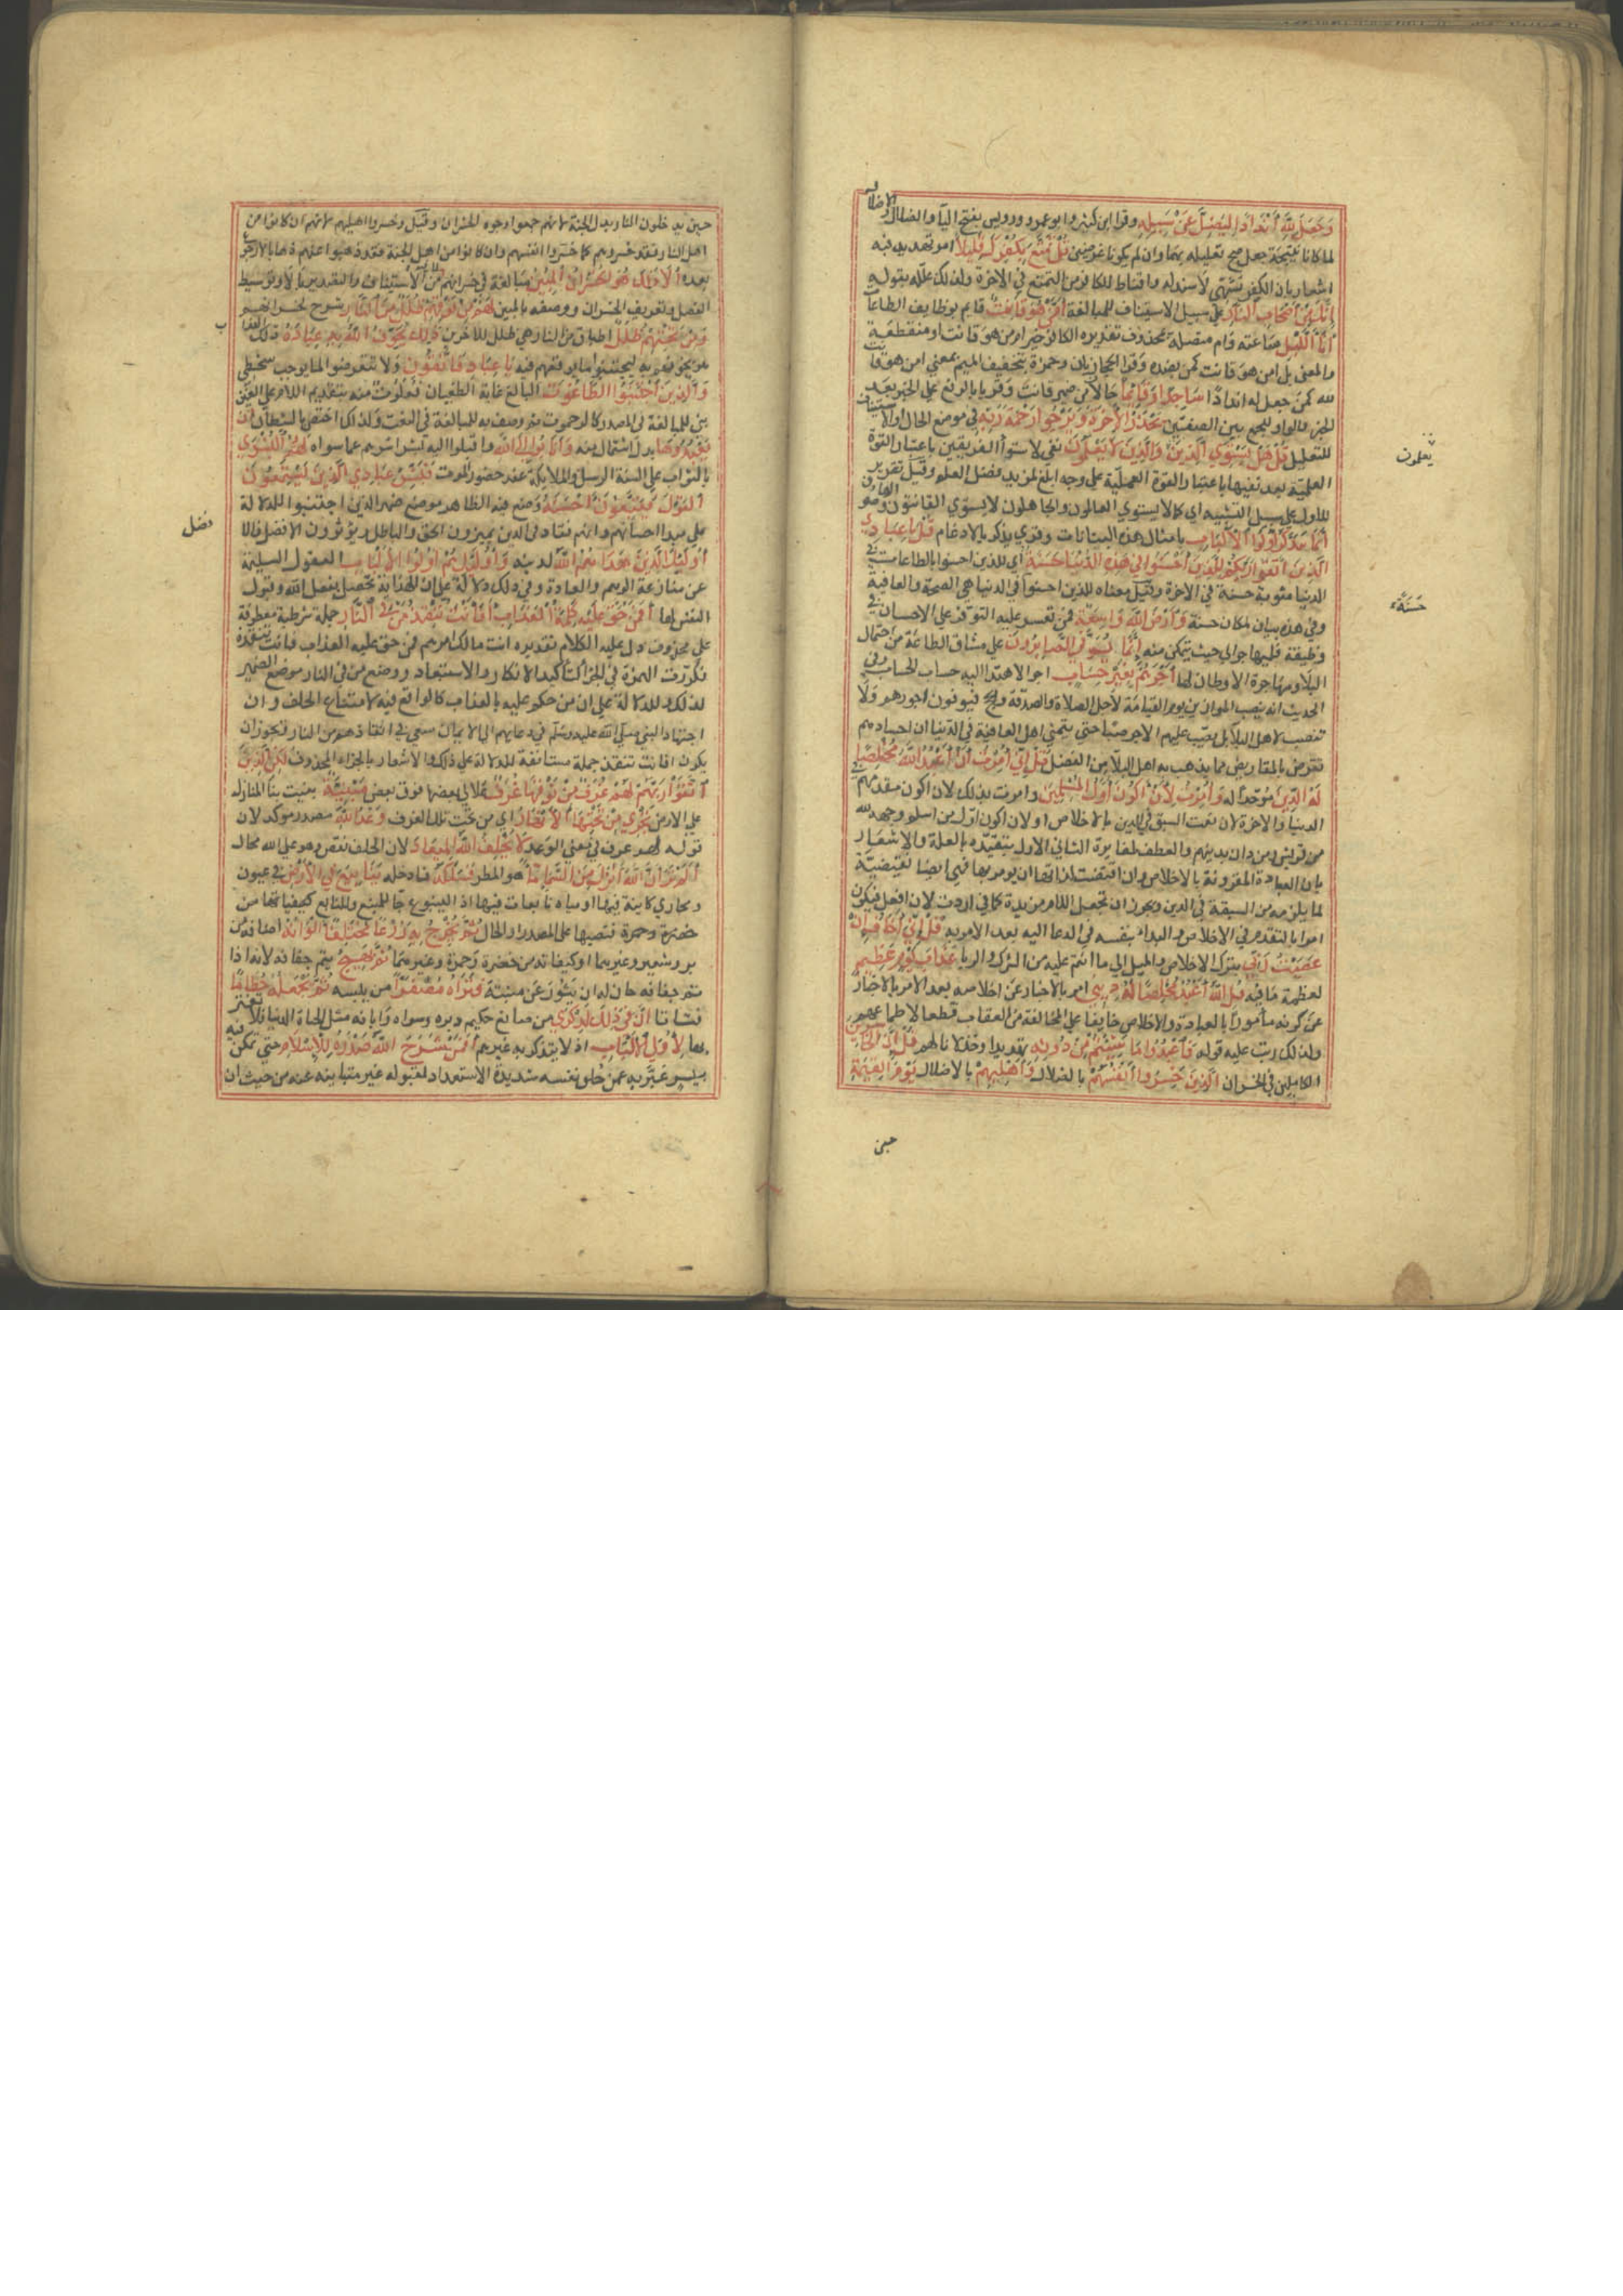 وَجَعَلَ لِلَّهِ أَنْدَادًا لِيَضِلَّ عَنْ سَبِيلِهِ وقرا ابن كثير وابو عمرو ورويس بفتح اليا والضلال والاضلال
لما كانا نتيجة جعله صح تعليله بهما وان لم يكونا غرضين قُلْ تَمَتَّعْ بِكُفْرِكَ قَلِيلًا امر تهديد فيه
اشعار بان الكفر تشهي لا سند له واقناط للكافر من التمتع في الاخرة ولذلك علله بقوله
إِنَّكَ مِنْ أَصْحَابِ النَّارِ علي سبيل الاستيناف للمبالغة أَمَّنْ هُوَ قَانِتٌ قايم بوظايف الطاعات
أَنَا اللَّيْلِ ساعاته وام متصلة بمحذوف تقديره الكافر خير ام من هو قانت او منقطعة
والمعني بل امن هو قانت كمن بضده وقرا الحجازيان وحمزة بتخفيف الميم بمعني امن هو قانت
لله كمن جعل له اندادًا سَاجِدًا وَقَائِمًا حالان من ضمير قانت وقريا بالرفع علي الخبر بعد
الخبر والواو للجمع بين الصفتين يَحْذَرُ الْآخِرَةَ وَيَرْجُوا رَحْمَةَ رَبِّهِ في موضع الحال او الاستيناف
للتعليل قُلْ هَلْ يَسْتَوِي الَّذِينَ وَالَّذِينَ لَا يَعْلَمُونَ نفي لاستوا الفريقين باعتبار القوة
يعلمون
العلمية بعد نفيها باعتبار القوة العملية علي وجه ابلغ لمزيد فضل العلم وقيل تقرير
للاول علي سبيل التشبيه اي كما لا يستوي العالمون والجاهلون لا يستوي القانتون والعاصون
إِنَّمَا يَتَذَكَّرُ أُولُوا الْأَلْبَابِ بامثال هذه البيانات وقري يذكر بالادغام قُلْ يَا عِبَادِي
الَّذِينَ آمَنُوا اتَّقُوا رَبَّكُمْ لِلَّذِينَ أَحْسَنُوا فِي هَذِهِ الدُّنْيَا حَسَنَةٌ اي للذين احسنوا بالطاعات في
الدنيا مثوبة حسنة في الاخرة وقيل معناه للذين احسنوا في الدنيا هي الصحة والعافية
حَسَنَةٌ
وفي هذه بيان لمكان حسنة وَأَرْضُ اللَّهِ وَاسِعَةٌ فمن تعسر عليه التوفر علي الاحسان في
وظيفة فليهاجر الي حيث يتمكن منه إِنَّمَا يُوَفَّى الصَّابِرُونَ علي مشاق الطاعة من احتمال
البلا ومهاجرة الاوطان لها أَجْرَهُمْ بِغَيْرِ حِسَابٍ اجرا لا يهتدا اليه حساب الحساب وفي
الحديث انه ينصب الموازين يوم القيامة لأهل الصلاة والصدقة والحج فيوفون اجورهم ولا
تنصب لاهل البلا بل يصب عليهم الاجر صبا حتي يتمني اهل العافية في الدنيا ان اجسادهم
تقرض بالمقاريض مما يذهب به اهل البلا من الفضل قُلْ إِنِّي أُمِرْتُ أَنْ أَعْبُدَ اللَّهَ مُخْلِصًا
لَهُ الدِّينَ موحدًا له وَأُمِرْتُ لِأَنْ أَكُونَ أَوَّلَ الْمُسْلِمِينَ وامرت بذلك لان اكون مقدمهم في
الدنيا والاخرة لان قصب السبق في الدين بالاخلاص او لان اكون اول من اسلم وجهه لله
من قريش ومن دان بدينهم والعطف لمغايرة الثاني الاول بتقييده بالعلة والاشعار
بان العبادة المقرونة بالاخلاص وان اقتضت لذاتها ان يومر بها فهي ايضا تقتضيه
لما يلزمه من السبقة في الدين ويجوز ان تجعل اللام مزيدة كما في اردت لان افعل فيكون
امرا بالتقدم في الاخلاص والبداء بنفسه في الدعا اليه بعد الامر به قُلْ إِنِّي أَخَافُ إِنْ
عَصَيْتُ رَبِّي بترك الاخلاص والميل الي ما انتم عليه من الشرك والريا عَذَابَ يَوْمٍ عَظِيمٍ
لعظمة ما فيه قُلِ اللَّهَ أَعْبُدُ مُخْلِصًا لَهُ دِينِي امر بالاخبار عن اخلاصه بعد الامر بالاخبار
عن كونه مأمورًا بالعبادة والاخلاص خايفا علي المخالفة من العقاب قطعا لاطماعهم
ولذلك رتب عليه قوله فَاعْبُدُوا مَا شِئْتُمْ مِنْ دُونِهِ تهديدا وخذلانا لهم قُلْ إِنَّ الْخَاسِرِينَ
الكاملين في الخسران الَّذِينَ خَسِرُوا أَنْفُسَهُمْ بالضلال وَأَهْلِيهِمْ بالاضلال يَوْمَ الْقِيَمَةِ
حين
حين يدخلون النار بدل الجنة لانهم جمعوا وجوه الخسران وقيل وخسروا اهليهم لانهم ان كانوا من
اهل النار فقد خسروهم كما خسروا انفسهم وان كانوا من اهل الجنة فقد ذهبوا عنهم ذهابا لا رجوع
بعده أَلَا ذَلِكَ هُوَ الْخُسْرَانُ الْمُبِينُ مبالغة في خسرانهم لما فيه من الاستيناف والتصدير بالا وتوسيط
الفصل وتعريف الخسران ووصفه بالمبين لَهُمْ مِنْ فَوْقِهِمْ ظُلَلٌ مِنَ النَّارِ شرح لخسرانهم
وَمِنْ تَحْتِهِمْ ظُلَلٌ اطباق من النار هي ظلل للاخرين ذَلِكَ يُخَوِّفُ اللَّهُ بِهِ عِبَادَهُ ذلك العذا
ب
هو يخوفهم به ليجتنبوا ما يوقعهم فيه يَا عِبَادِ فَاتَّقُونِ ولا تتعرضوا لما يوجب سخطي
وَالَّذِينَ اجْتَنَبُوا الطَّاغُوتَ البالغ غاية الطغيان فعلوت منه بتقديم اللام علي العين
بني للمبالغة في المصدر كالرحموت ثم وصف به للمبالغة في النعت ولذلك اختص بالشيطان أَنْ
يَعْبُدُوهَا بدل اشتمال منه وَأَنَابُوا إِلَى اللَّهِ واقبلوا اليه بشراشرهم عما سواه لَهُمُ الْبُشْرَى
بالثواب علي السنة الرسل والملايكة عند حضور الموت فَبَشِّرْ عِبَادِي الَّذِينَ يَسْتَمِعُونَ
الْقَوْلَ فَيَتَّبِعُونَ أَحْسَنَهُ وضع فيه الظاهر موضع ضمير الذين اجتنبوا للدلالة
علي مبدا احسانهم وانهم نقاد في الدين يميزون الحق والباطل ويوثرون الافضل فالا
فضل
أُولَئِكَ الَّذِينَ هَدَاهُمُ اللَّهُ لدينه وَأُولَئِكَ هُمْ أُولُوا الْأَلْبَابِ العقول السليمة
عن منازعة الوهم والعادة وفي ذلك دلالة علي ان الهداية تحصل بفعل الله وقبول
النفس لها أَفَمَنْ حَقَّ عَلَيْهِ كَلِمَةُ الْعَذَابِ أَفَأَنْتَ تُنْقِذُ مَنْ فِي النَّارِ جملة شرطية معطوفة
علي محذوف دل عليه الكلام تقديره انت مالك امرهم فمن حق عليه العذاب فانت تنقذه
فكررت الهمزة في الجزا لتأكيد الانكار والاستبعاد ووضع من في النار موضع الضمير
لذلك وللدلالة علي ان من حكم عليه بالعذاب كالواقع فيه لامتناع الخلف وان
اجتهاد النبي صلي الله عليه وسلم في دعايهم الي الايمان سعي في انقاذهم من النار ويجوز ان
يكون افانت تنقذ جملة مستانفة للدلالة علي ذلك والاشعار بالجزاء المحذوف لَكِنِ الَّذِينَ
اتَّقَوْا رَبَّهُمْ لَهُمْ غُرَفٌ مِنْ فَوْقِهَا غُرَفٌ علالي بعضها فوق بعض مَبْنِيَّةٌ بنيت بنا المنازل
علي الارض تَجْرِي مِنْ تَحْتِهَا الْأَنْهَارُ اي من تحت تلك الغرف وَعْدَ اللَّهِ مصدر موكد لان
قوله لهم غرف في معني الوعد لَا يُخْلِفُ اللَّهُ الْمِيعَادَ لان الخلف نقص وهو علي الله محال
أَلَمْ تَرَ أَنَّ اللَّهَ أَنْزَلَ مِنَ السَّمَاءِ مَاءً هو المطر فَسَلَكَهُ فادخله يَنَابِيعَ فِي الْأَرْضِ في عيون
ومجاري كاينة فيها او مياه نابعات فيها اذ الينبوع جا للمنبع وللنابع
خضرة وحمرة فنصبها علي المصدر او الحال ثُمَّ يُخْرِجُ بِهِ زَرْعًا مُخْتَلِفًا أَلْوَانُهُ اصنافه من
بر وشعير وغيرهما او كيفياته من خضرة وحمرة وغيرهما ثُمَّ يَهِيجُ يتم جفافه لانه اذا
تم جفافه حان له ان يثور عن منبته فَتَرَاهُ مُصْفَرًّا من يبسه ثُمَّ يَجْعَلُهُ حُطَامًا
فتاتا إِنَّ فِي ذَلِكَ لَذِكْرَى من صانع حكيم دبره وسواه وبانه مثل الحياة الدنيا فلا تغتر
بها لِأُولِي الْأَلْبَابِ اذ لا يتذكر به غيرهم أَفَمَنْ شَرَحَ اللَّهُ صَدْرَهُ لِلْإِسْلَامِ حتي تمكن فيه
بيسر عبر به عمن خلق نفسه شديدة الاستعداد لقبوله غير متابية عنه من حيث ان